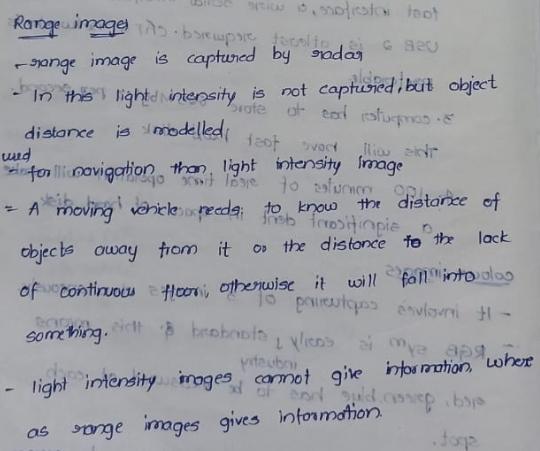 Range images
- range image is captured by radar
- In this light intensity is not captured; but object
distance is modelled;
used
- for navigation than light intensity Image
- A moving vehicle needs; to know the distance of
objects away from it or the distance to the lack
of continuous floor, otherwise it will fall into
something.
- light intensity images cannot give information, where
as range images gives information.